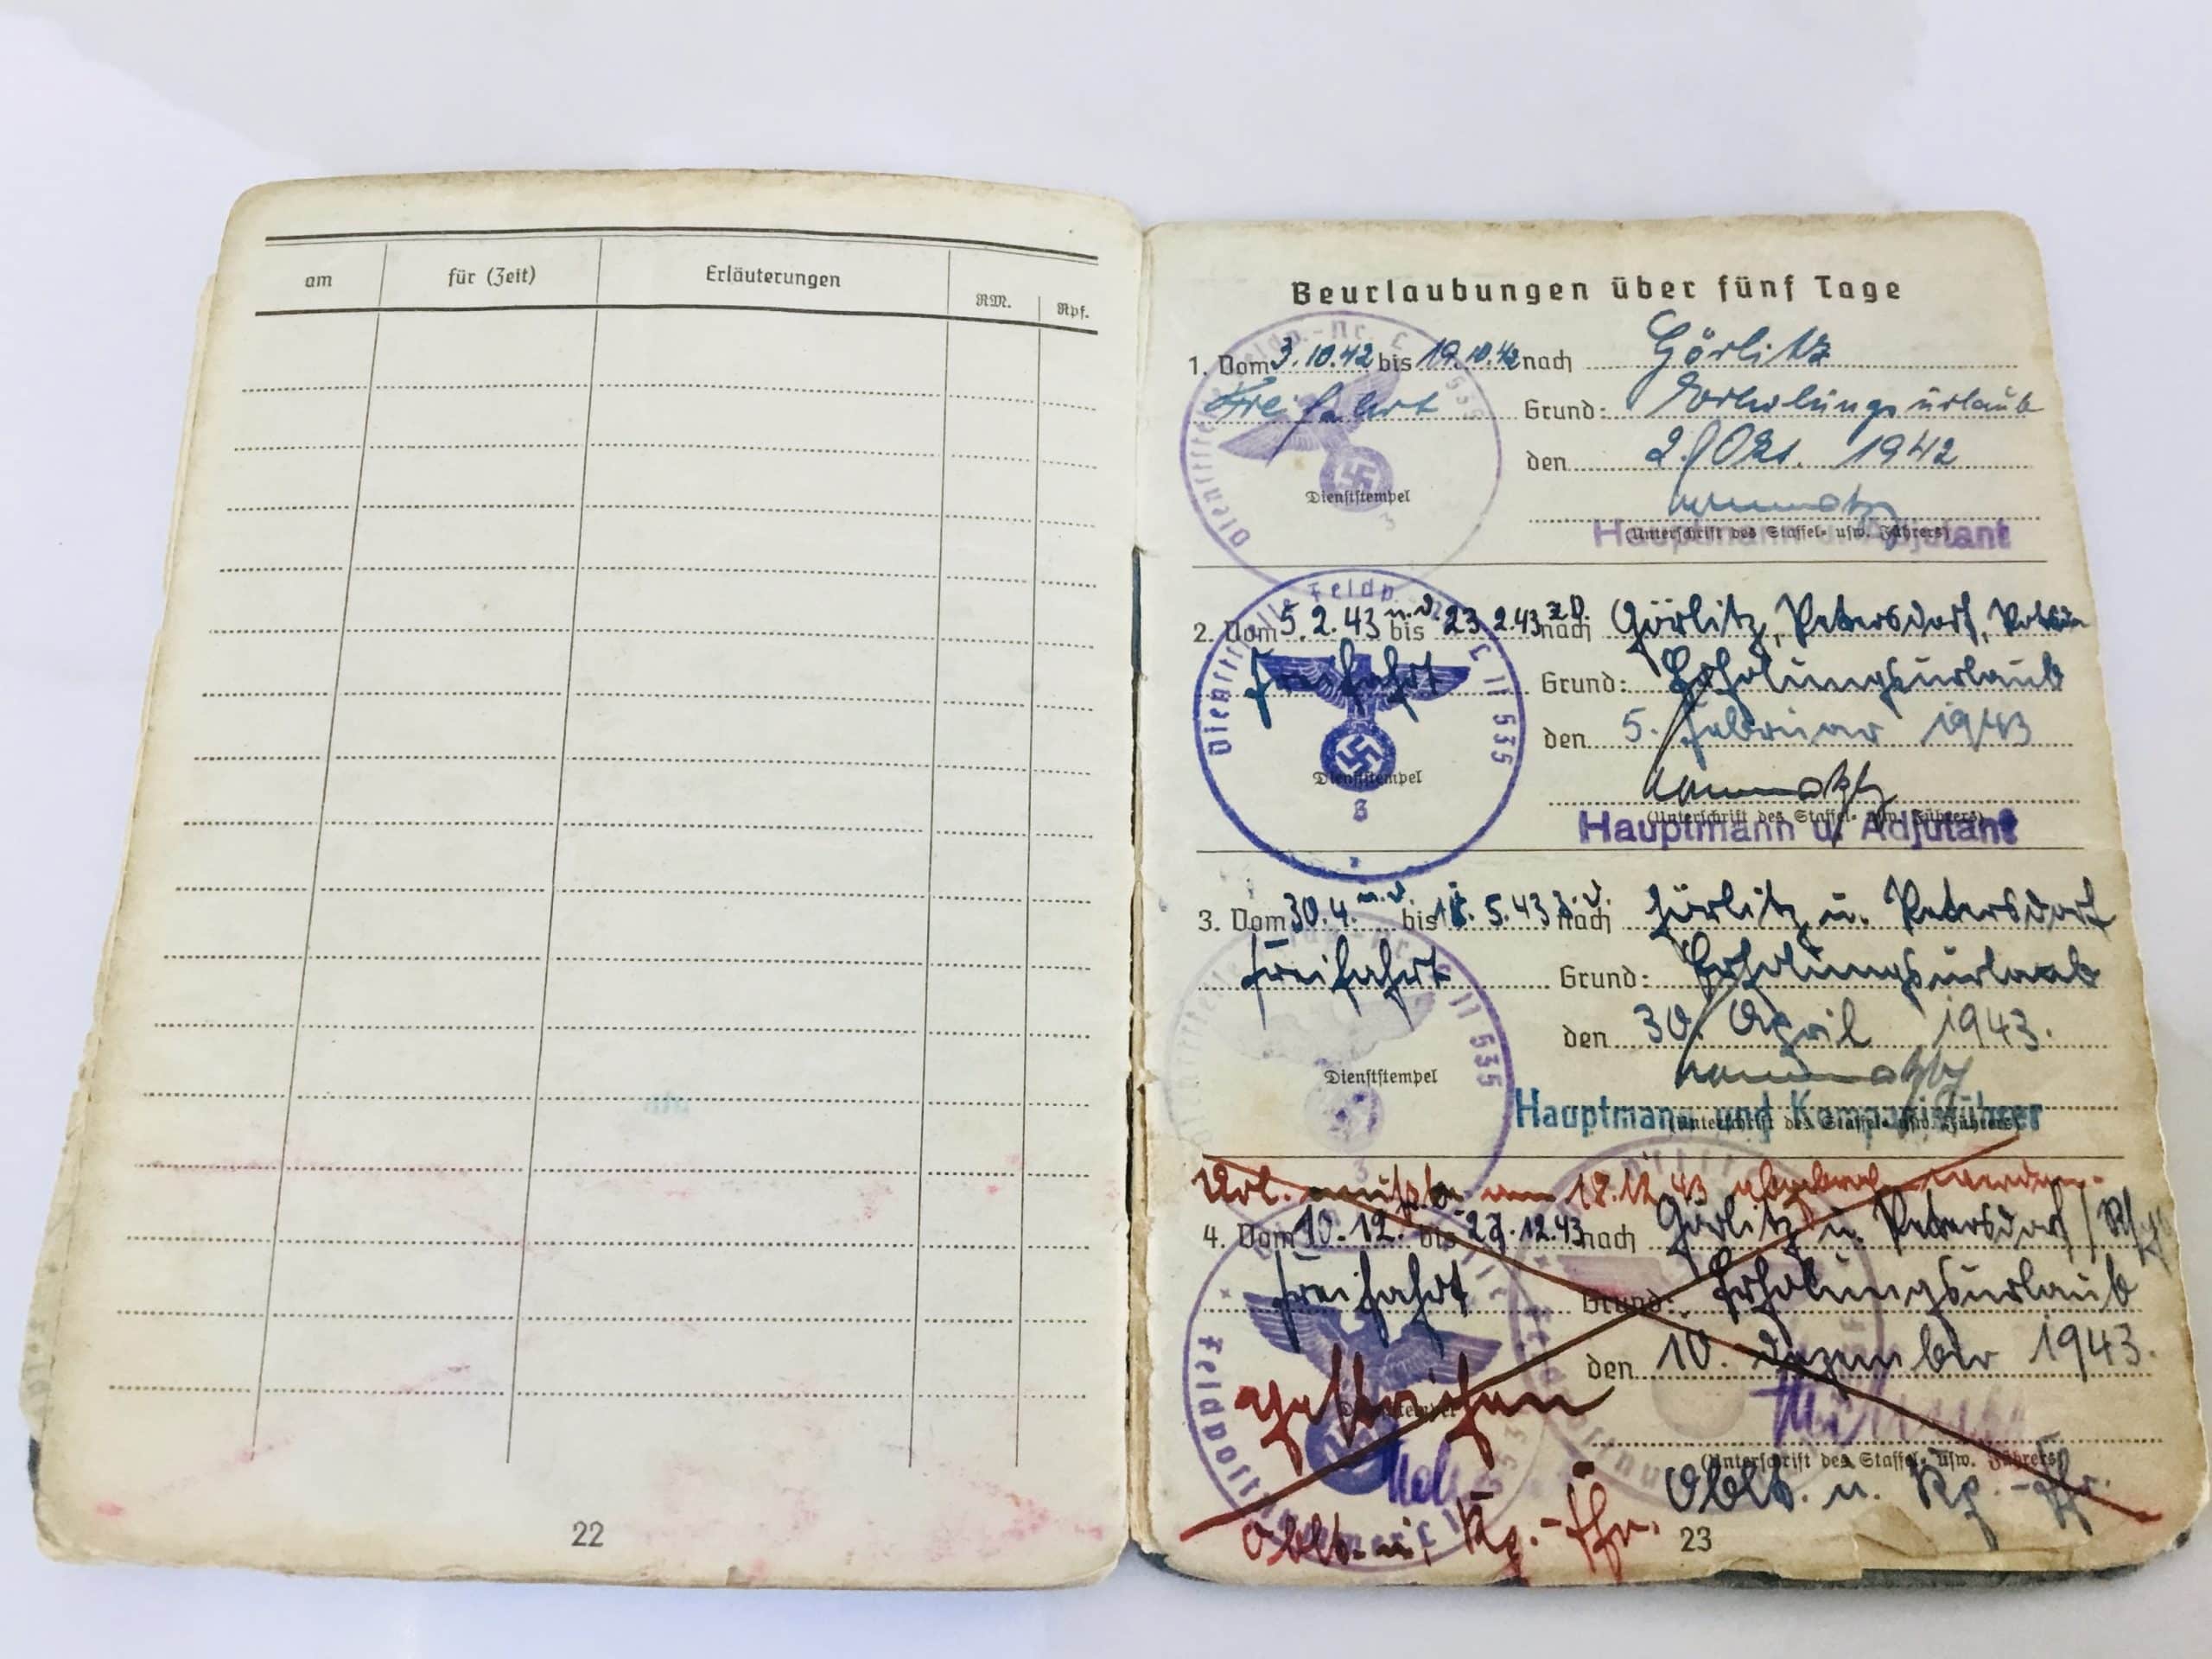 am für (Zeit) Erläuterungen RM. Rpf.
22
Beurlaubungen über fünf Tage
1. Vom 3.10.42 bis 19.10.42 nach Görlitz
Freifahrt Grund: Erholungsurlaub
den 2. Okt. 1942
Dienststempel
(Unterschrift des Staffel- usw. Führers)
Hauptmann u. Adjutant
Dienststelle Feldp.-Nr. L 11 535
3
2. Vom 5.2.43 n.D. bis 23.2.43 z.D. nach Görlitz, Petersdorf,
Freifahrt Grund: Erholungsurlaub
den 5. Februar 1943
Dienststempel
(Unterschrift des Staffel- usw. Führers)
Hauptmann u. Adjutant
Dienststelle Feldp.-Nr. L 11 535
3
3. Vom 30.4. n.D. bis 5.43 z.D. nach Görlitz u. Petersdorf
Freifahrt Grund: Erholungsurlaub
den 30. April 1943.
Dienststempel
(Unterschrift des Staffel- usw. Führers)
Hauptmann und Kompanieführer
Dienststelle Feldp.-Nr. L 11 535
3
Url. mußte am 18.12.43 abgebroch. werden.
4. Vom 10.12. bis 29.12.43 nach Görlitz u. Petersdorf
Freifahrt Grund: Erholungsurlaub
den 10. Dezember 1943.
gestrichen
Dienststempel
(Unterschrift des Staffel- usw. Führers)
Oblt. u. Kp.-Fhr.
Oblt. u. Kp.-Fhr.
23